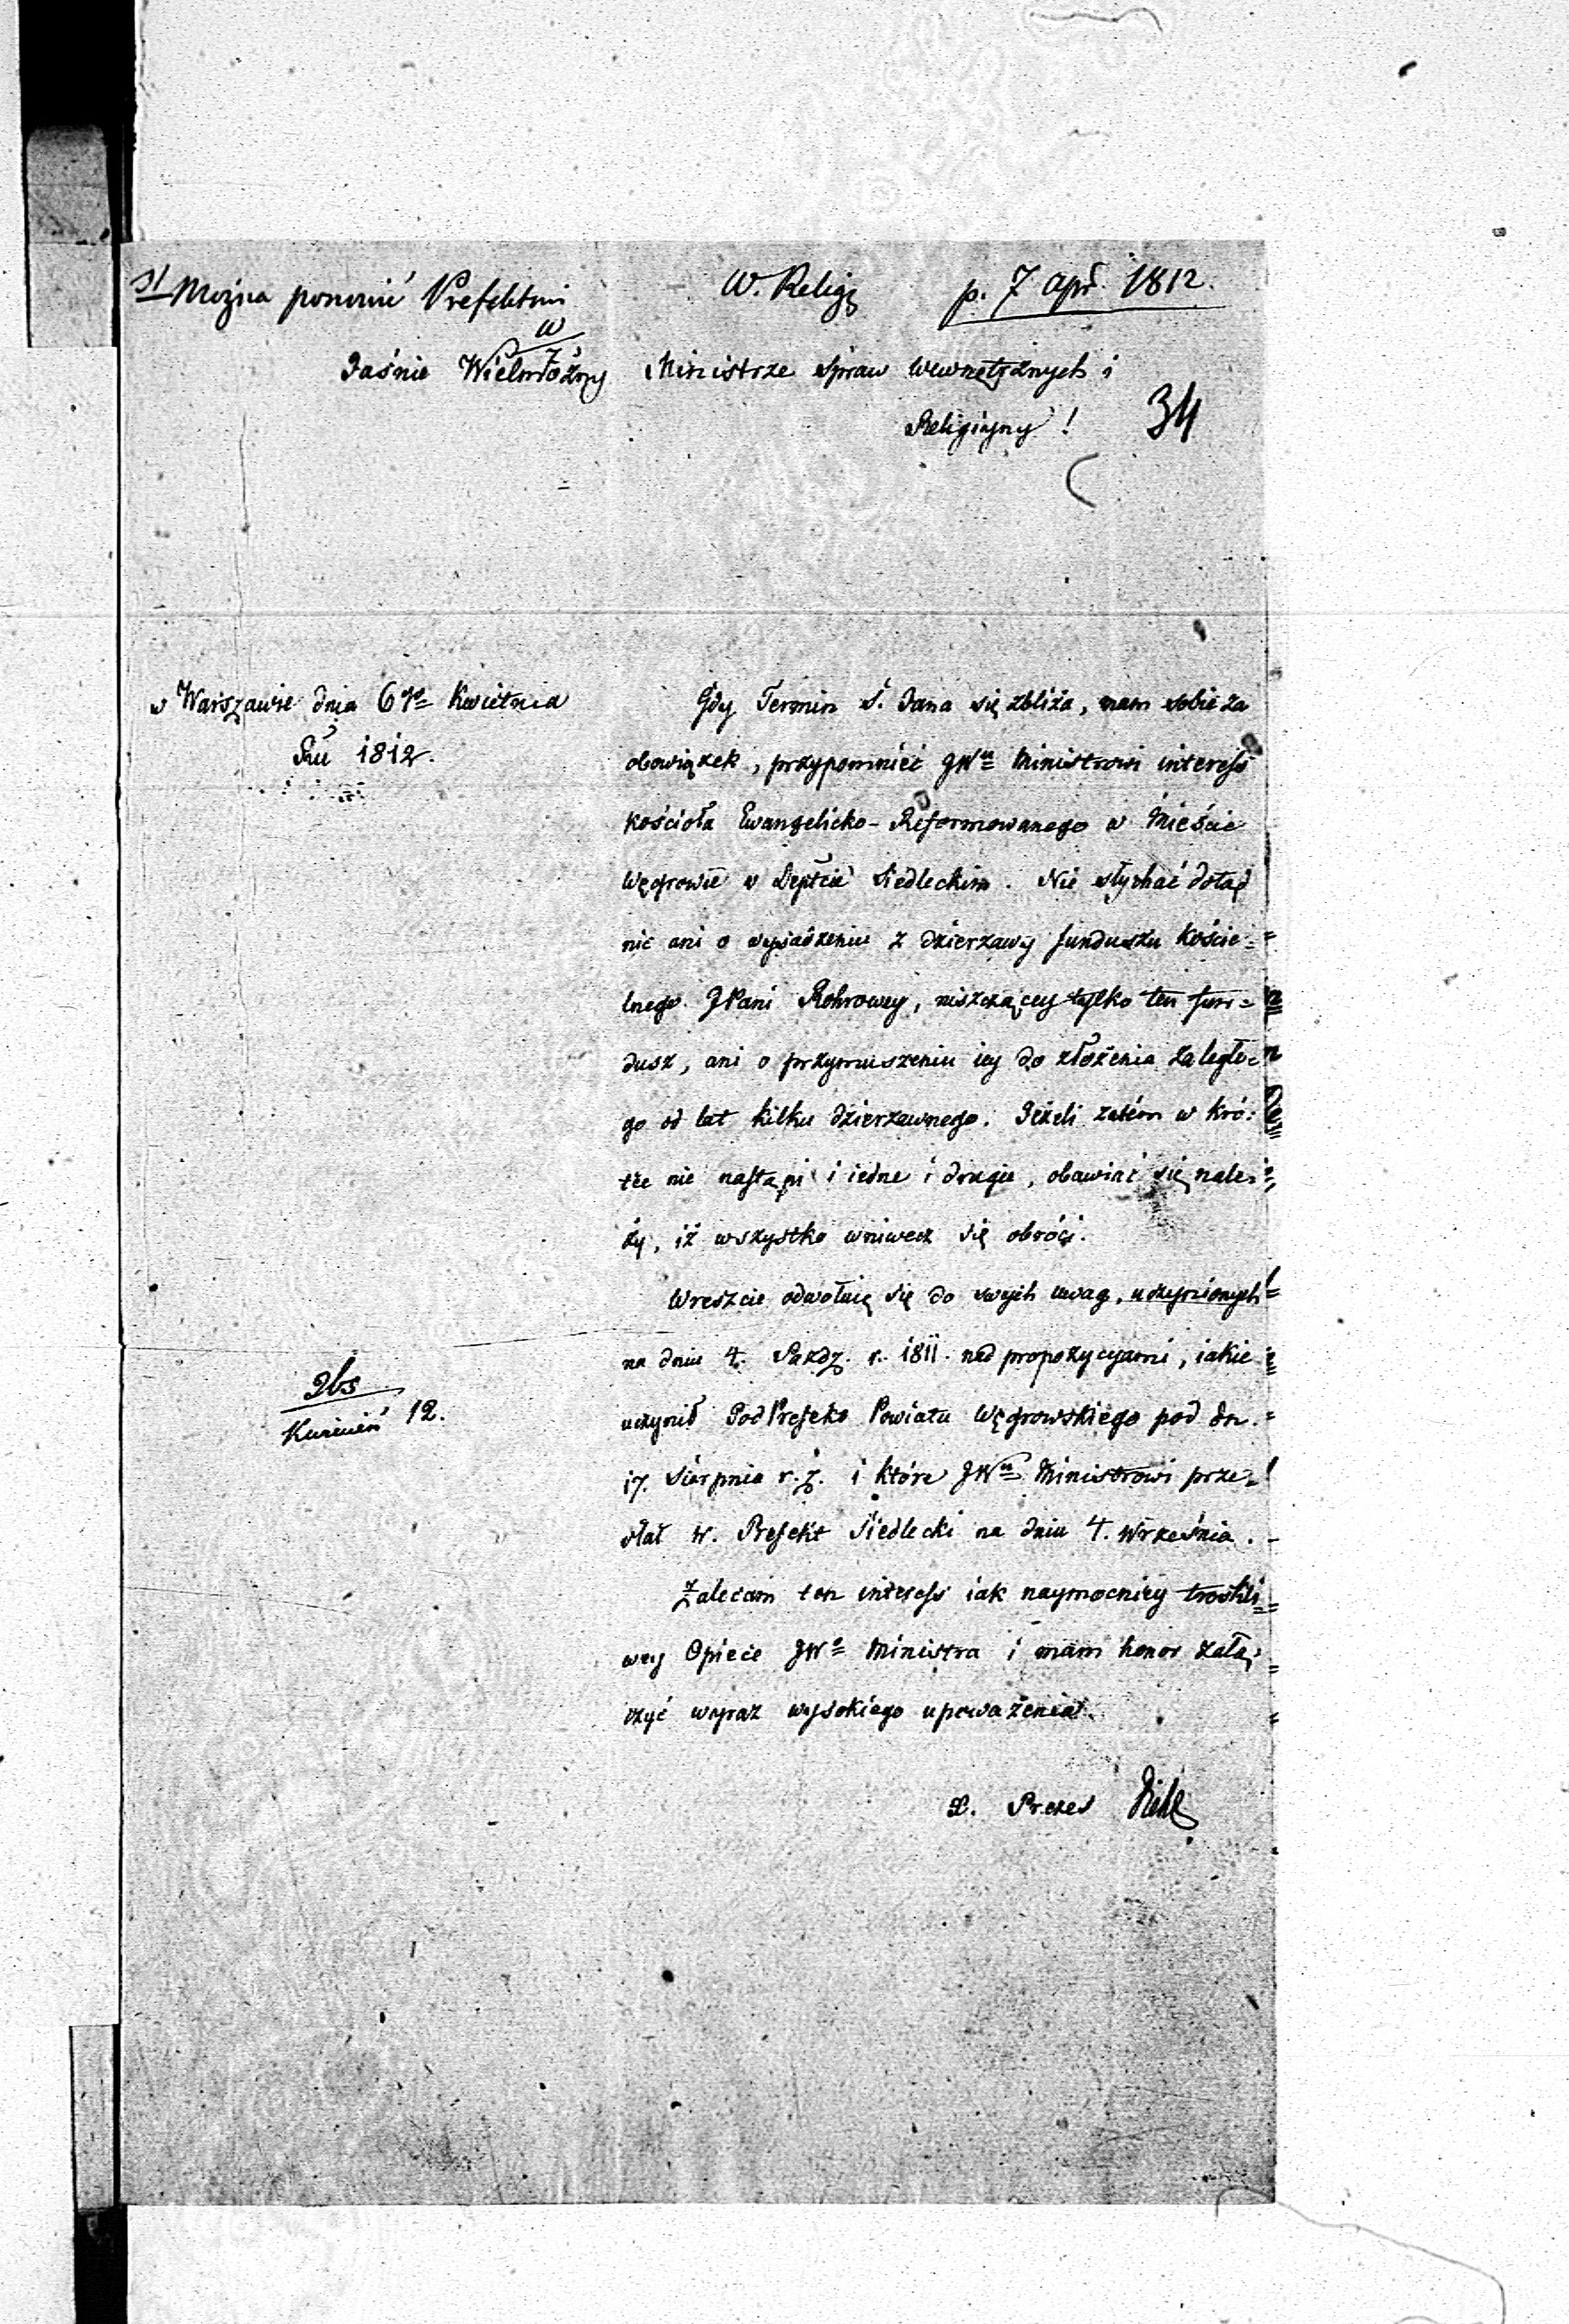 Można ponowić Prefektowi
W. Religy p. 7 apr. 1812.
Jaśnie Wielmożny Ministrze Spraw Wewnętrznych i
Religiyny! 34
w Warszawie dnia 6go Kwietnia
Ru 1812.
Gdy Termin S. Jana się zbliża, mam sobie za
obowiązek, przypomnieć JWu Ministrowi interess
kościoła Ewangelicko-Reformowanego w Mieście
Węgrowie w Depcie Siedleckim. Nie słychać dotąd
nic ani o wysadzeniu z dzierzawy funduszu kościel-
lnego JPani Rohrowey, niszczącey tylko ten fun=
dusz, ani o przymuszeniu iey do złożenia zaległe-
go od lat kilku dzierzawnego. Jeżeli zatém w kró-
tce nie nastąpi i iedne i drugie, obawiać się nale-
ży, iż wszystko wniwecz się obróci.
Wreszcie odwołuię się do swych uwag, uczynionych
na dniu 4. Paźdz. r. 1811. nad propozycyami, iakie
uczynił PodPrefekt Powiatu Węgrowskiego pod dn.
17. Sierpnia r. z. i które JWu Ministrowi prze-
słał W. Prefekt Siedlecki na dniu 4. Września.
Zalecam ten interess iak naymocniey troskli=
wey Opiece JWo Ministra i mam honor załą-
czyć wyraz wysokiego upoważenia.
X. Prezes Diehl
Kwiecień 12.